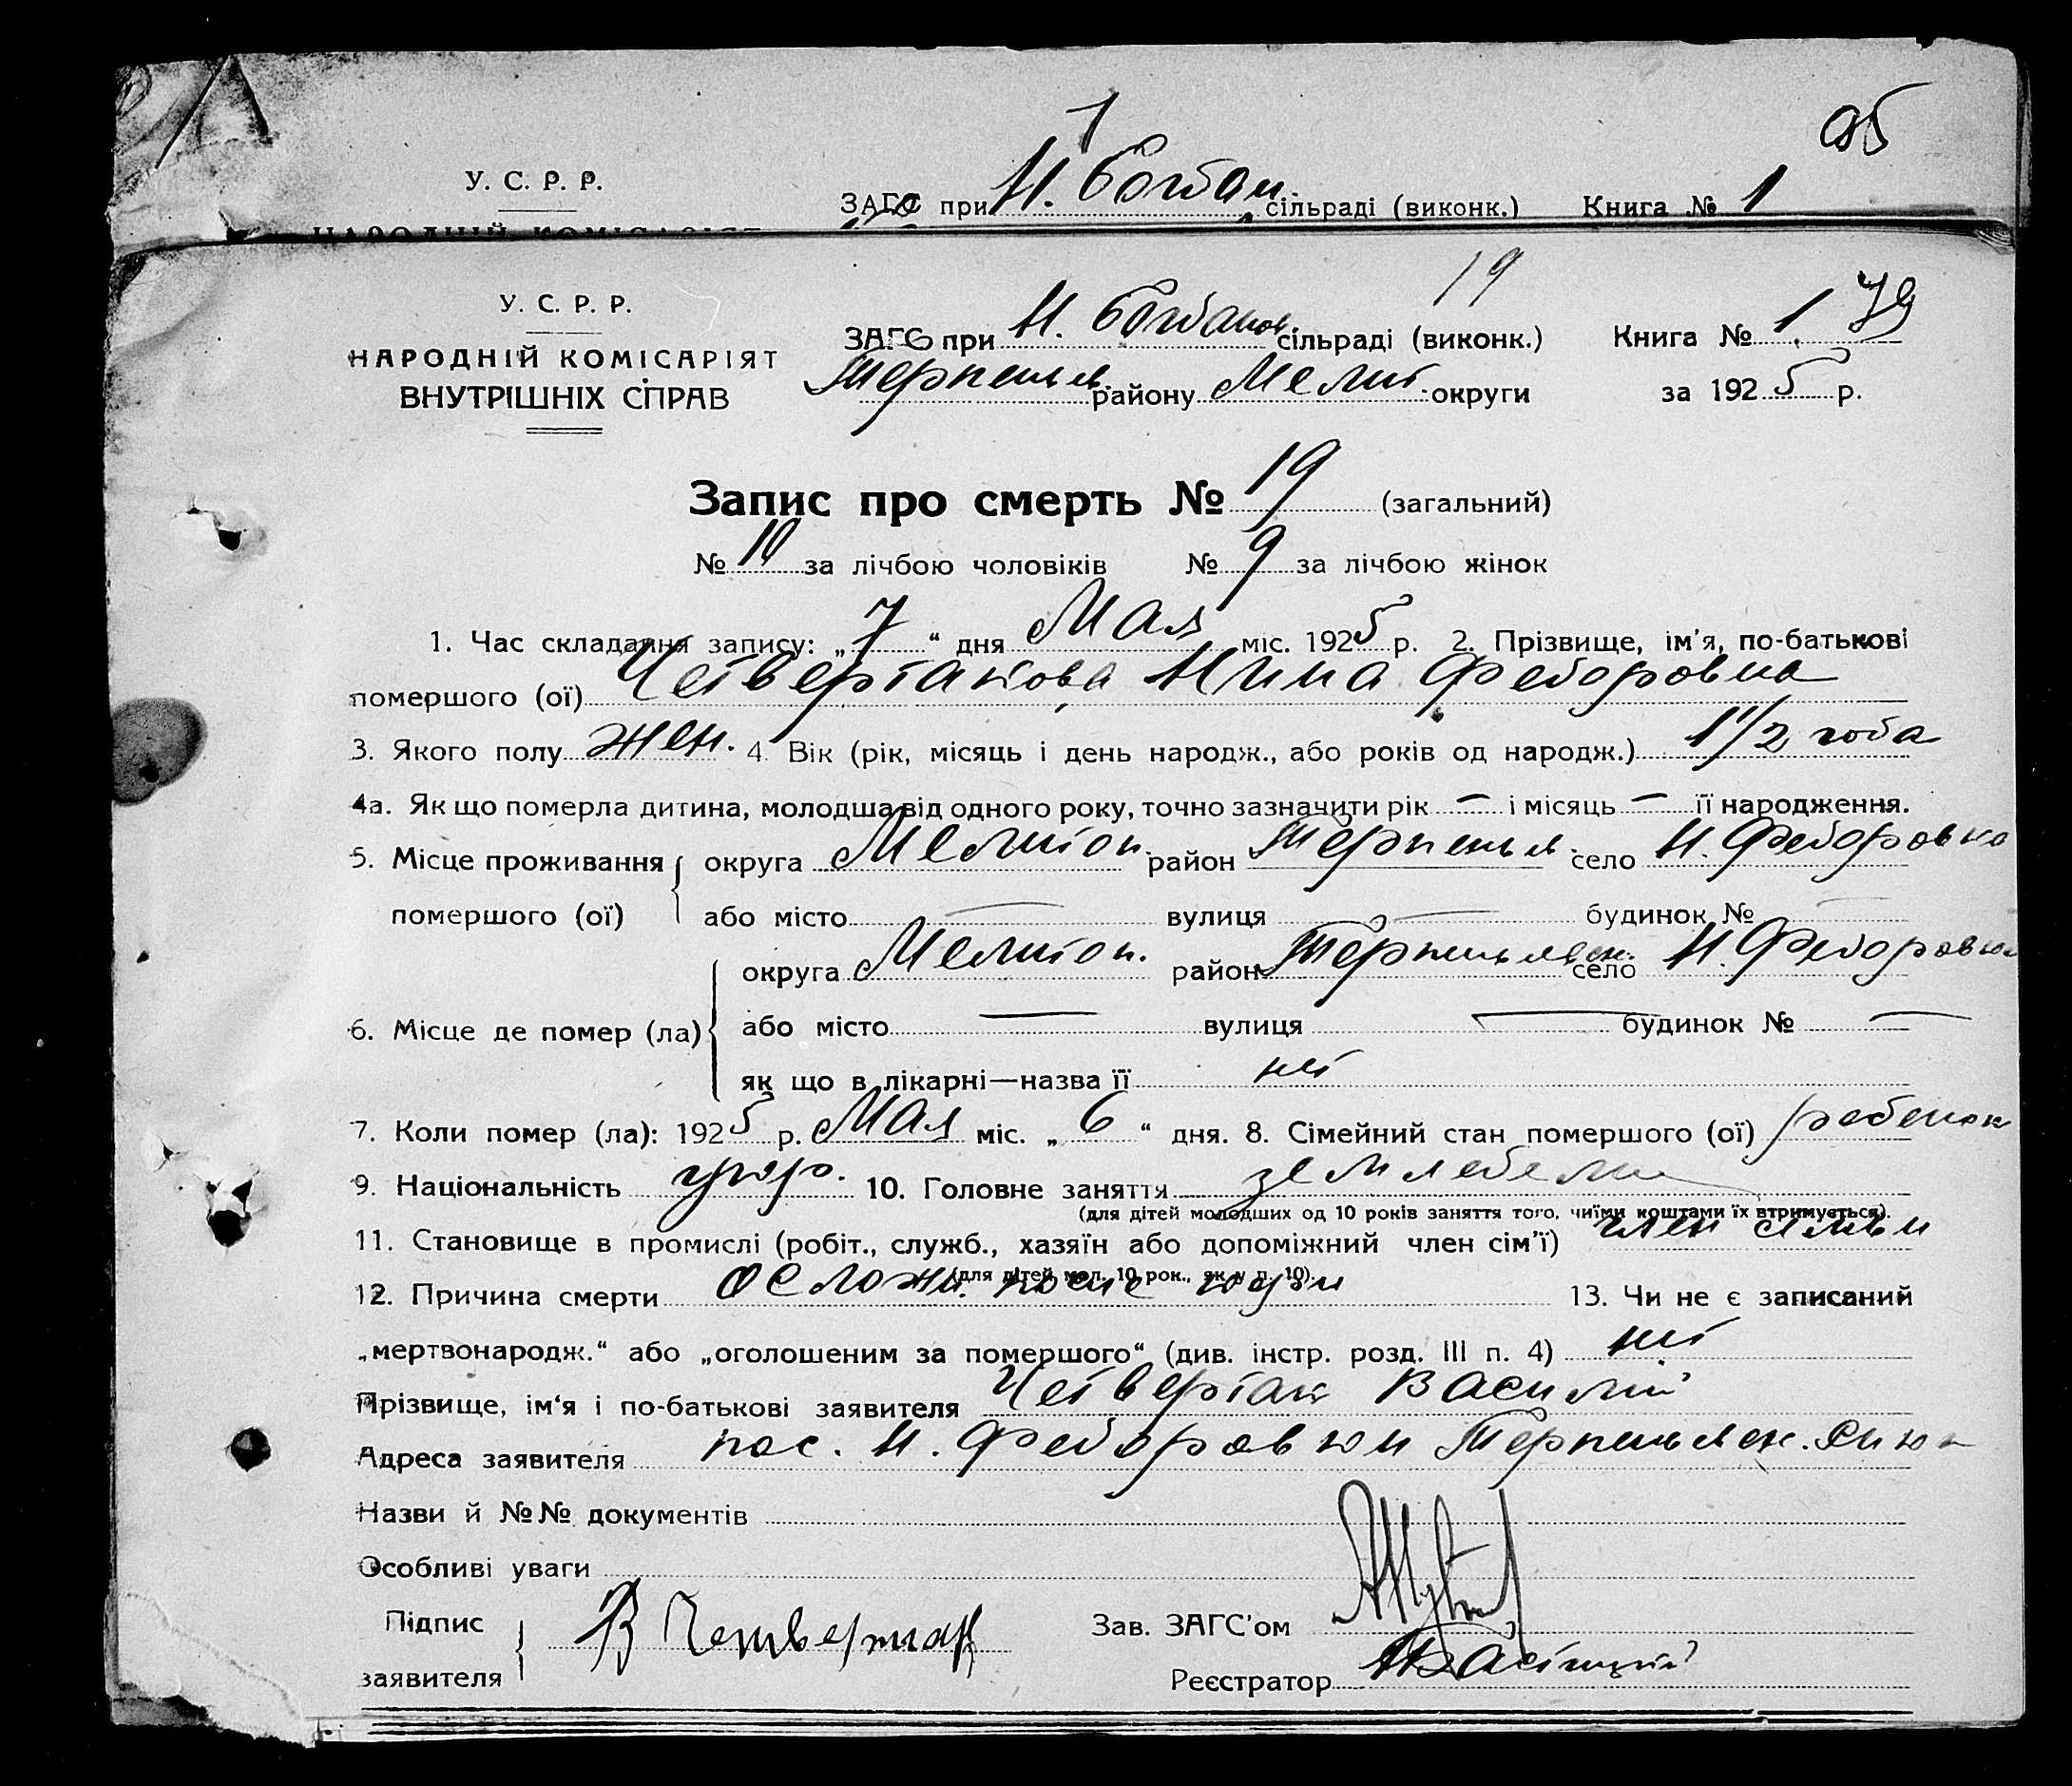 95
1
У. С. Р. Р.
ЗАГС при Н. Богдан. сільраді (виконк.) Книга № 1
НАРОДНІЙ КОМІСАРІЯТ
19
У. С. Р. Р.
ЗАГС при Н. Богданов. сільраді (виконк.) Книга № 1 79
НАРОДНІЙ КОМІСАРІЯТ
Терпеньев. району Мелит. округи за 1925 р.
ВНУТРІШНІХ СПРАВ
Запис про смерть № 19 (загальний)
№ 10 за лічбою чоловіків № 9 за лічбою жінок
1. Час складання запису: „7“ дня Мая міс. 1925 р. 2. Прізвище, ім'я, по-батькові
помершого (ої) Четвертакова Нина Федоровна
3. Якого полу жен. 4. Вік (рік, місяць і день народж., або років од народж.) 1 1/2 года
4а. Як що померла дитина, молодша від одного року, точно зазначити рік — і місяць — її народження.
5. Місце проживання округа Мелитоп. район Терпеньев. село Н. Федоровка
помершого (ої) або місто — вулиця — будинок № —
округа Мелитоп. район село Н. Федоровка
6. Місце де помер (ла) або місто — вулиця — будинок № —
як що в лікарні—назва її ні
7. Коли помер (ла): 1925 р. Мая міс. „6“ дня. 8. Сімейний стан помершого (ої) ребенок
9. Національність укр. 10. Головне заняття земледел.
(для дітей молодших од 10 років заняття того, чиїми коштами їх втримується).
11. Становище в промислі (робіт., служб., хазяїн або допоміжний член сім'ї) член сімьи
(для дітей мол. 10 рок., як у п. 10).
12. Причина смерти осложн. после кори 13. Чи не є записаний
„мертвонародж.“ або „оголошеним за помершого“ (див. інстр. розд. III п. 4) ні
Прізвище, ім'я і по-батькові заявителя Четвертак Василий
Адреса заявителя пос. Н. Федоровки
Назви й №№ документів
Особливі уваги
Підпис заявителя В Четвертак Зав. ЗАГС'ом
Реєстратор